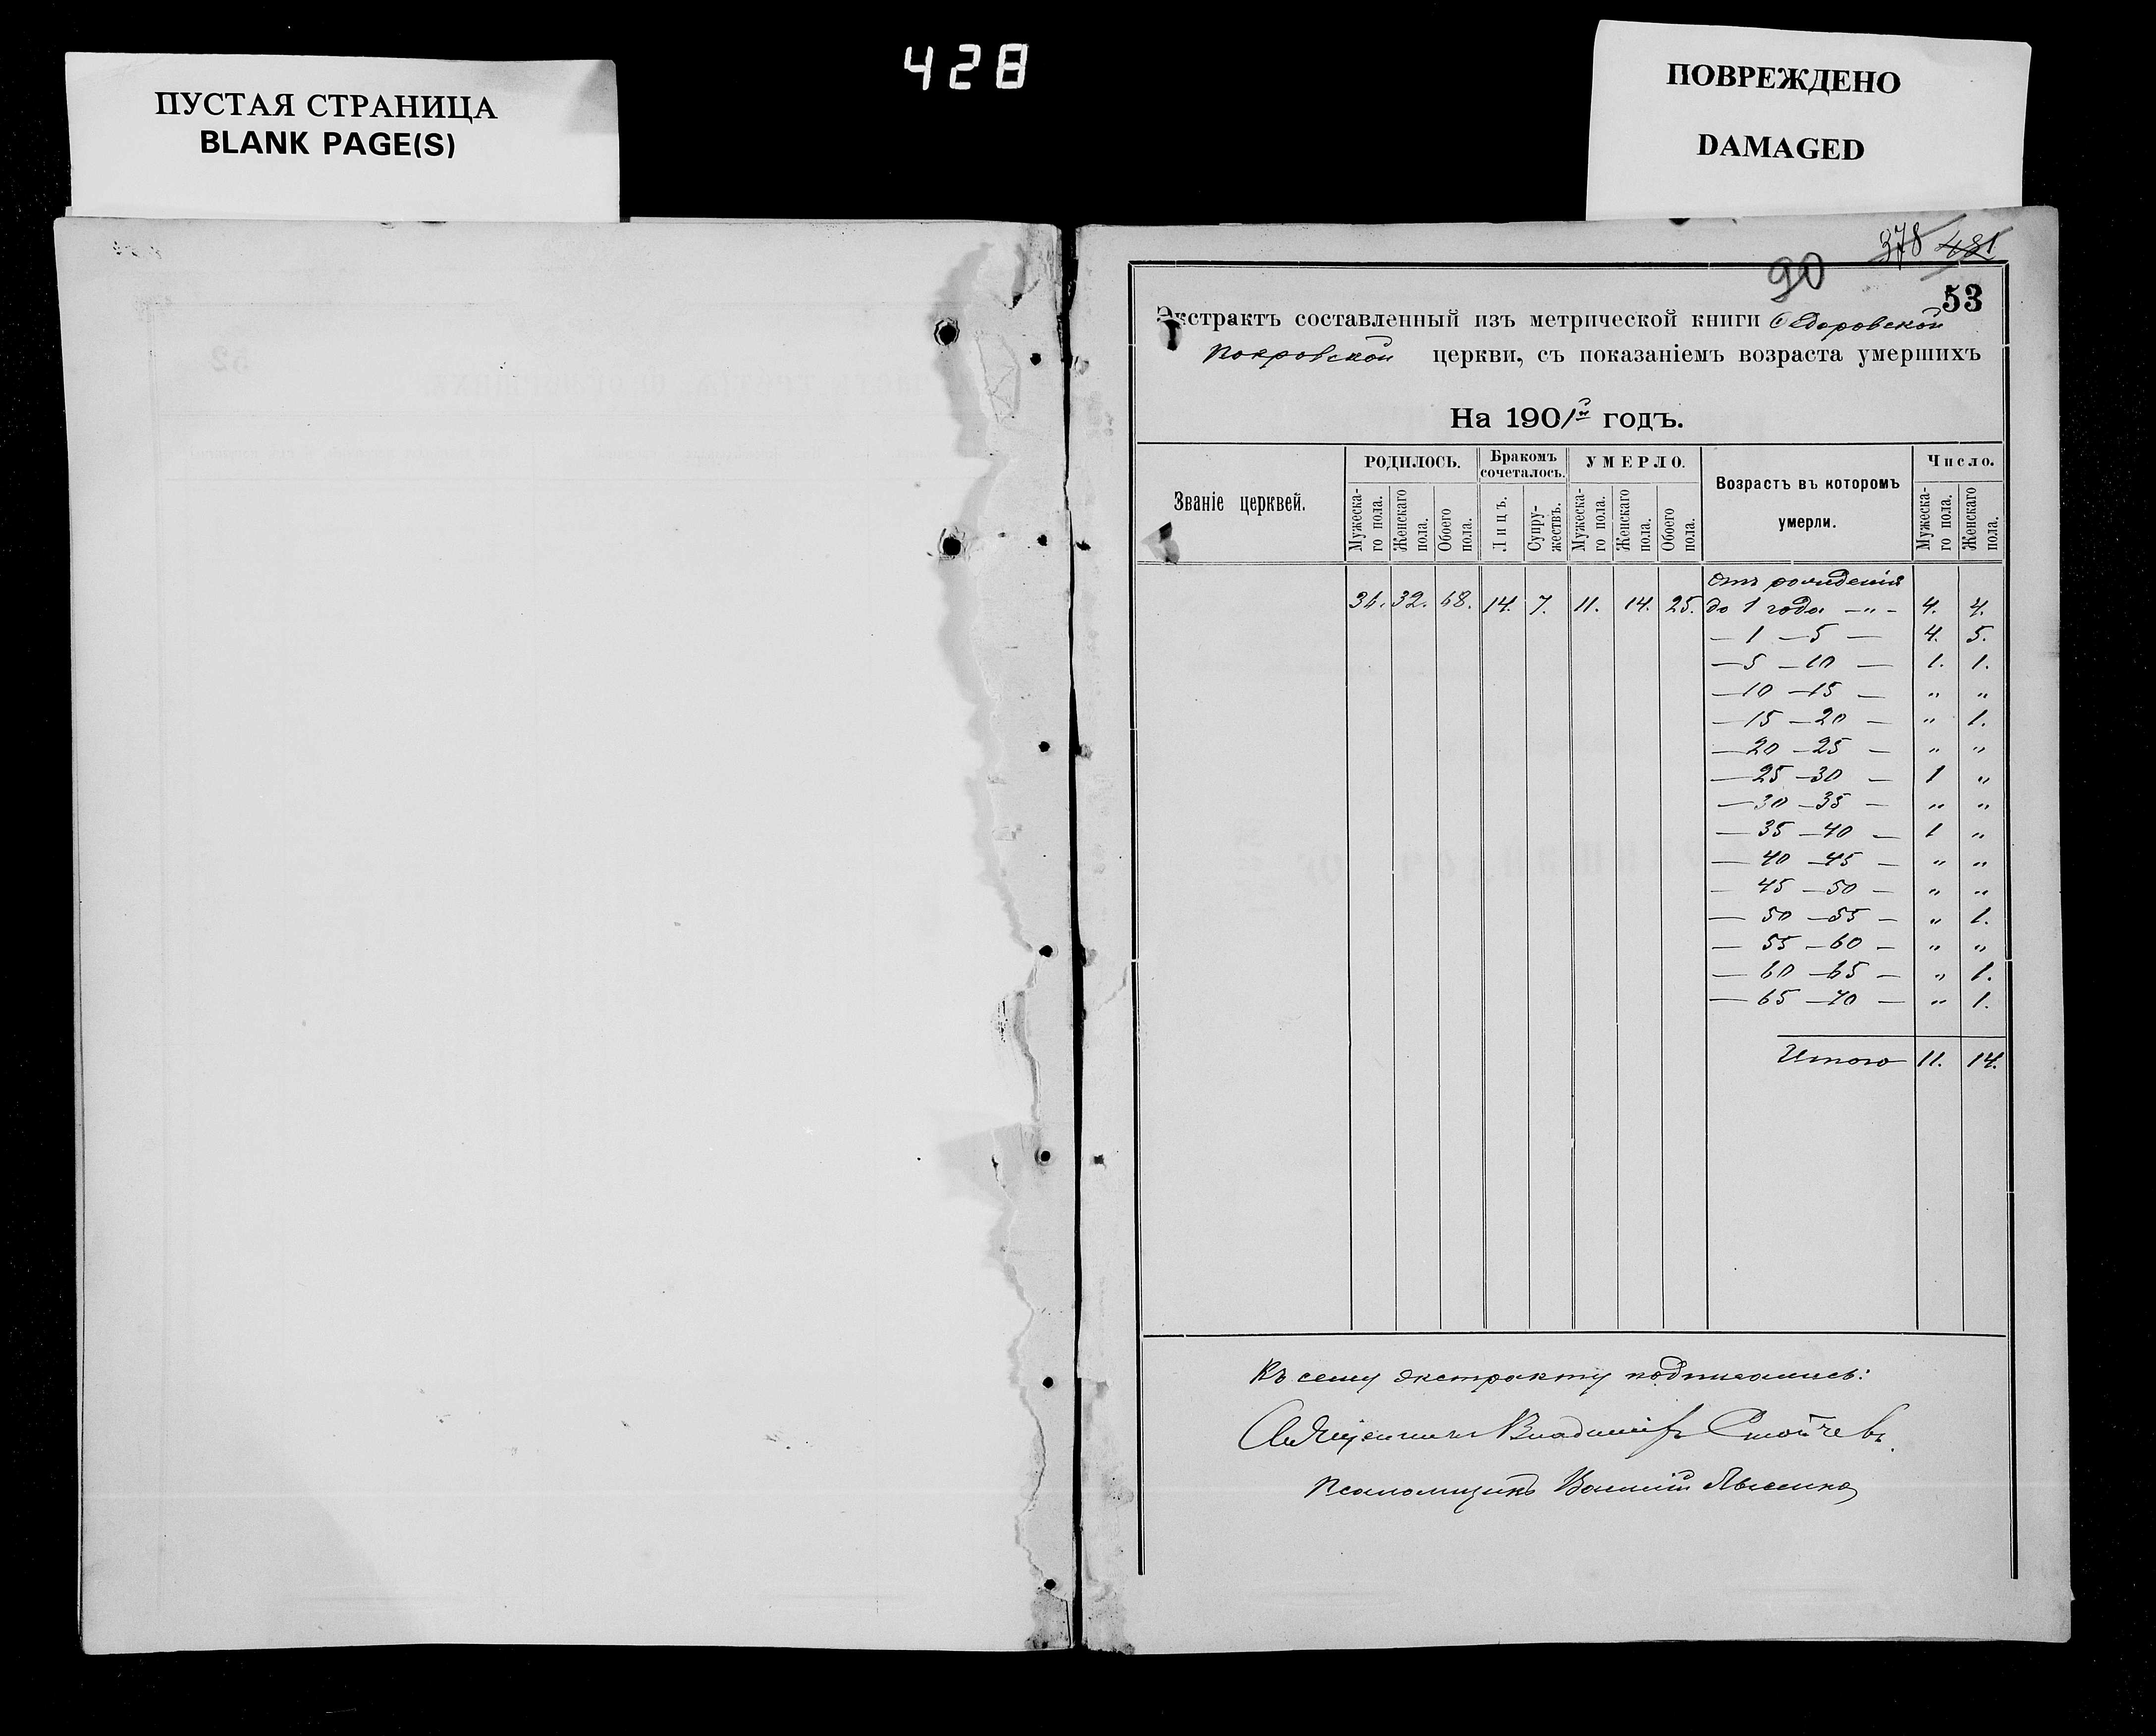 428
ПУСТАЯ СТРАНИЦА
BLANK PAGE(S)
ПОВРЕЖДЕНО
DAMAGED
378 481
90
53
Экстрактъ составленный изъ метрической книги Ѳедоровской
Покровской церкви, съ показаніемъ возраста умершихъ
На 1901й годъ.
Званіе церквей.
РОДИЛОСЬ.
Мужеска-
го пола.
Женскаго
пола.
Обоего
пола.
Бракомъ
сочеталось.
Лицъ.
Супру-
жествъ.
УМЕРЛО.
Мужеска-
го пола.
Женскаго
пола.
Обоего
пола.
Возрастъ въ которомъ
умерли.
Число.
Мужеска-
го пола.
Женскаго
пола.
Отъ рожденія
36. 32. 68. 14. 7. 11. 14. 25. до 1 года — " — 4. 4.
— 1 — 5 — 4. 5.
— 5 — 10 — 1. 1.
— 10 — 15 — " "
— 15 — 20 — " 1.
— 20 — 25 — " "
— 25 — 30 — 1 "
— 30 — 35 — " "
— 35 — 40 — 1 "
— 40 — 45 — " "
— 45 — 50 — " "
— 50 — 55 — " 1.
— 55 — 60 — " "
— 60 — 65 — " 1.
— 65 — 70 — " 1.
Итого 11. 14.
Къ сему экстракту подписались:
Священникъ Владиміръ
Псаломщикъ